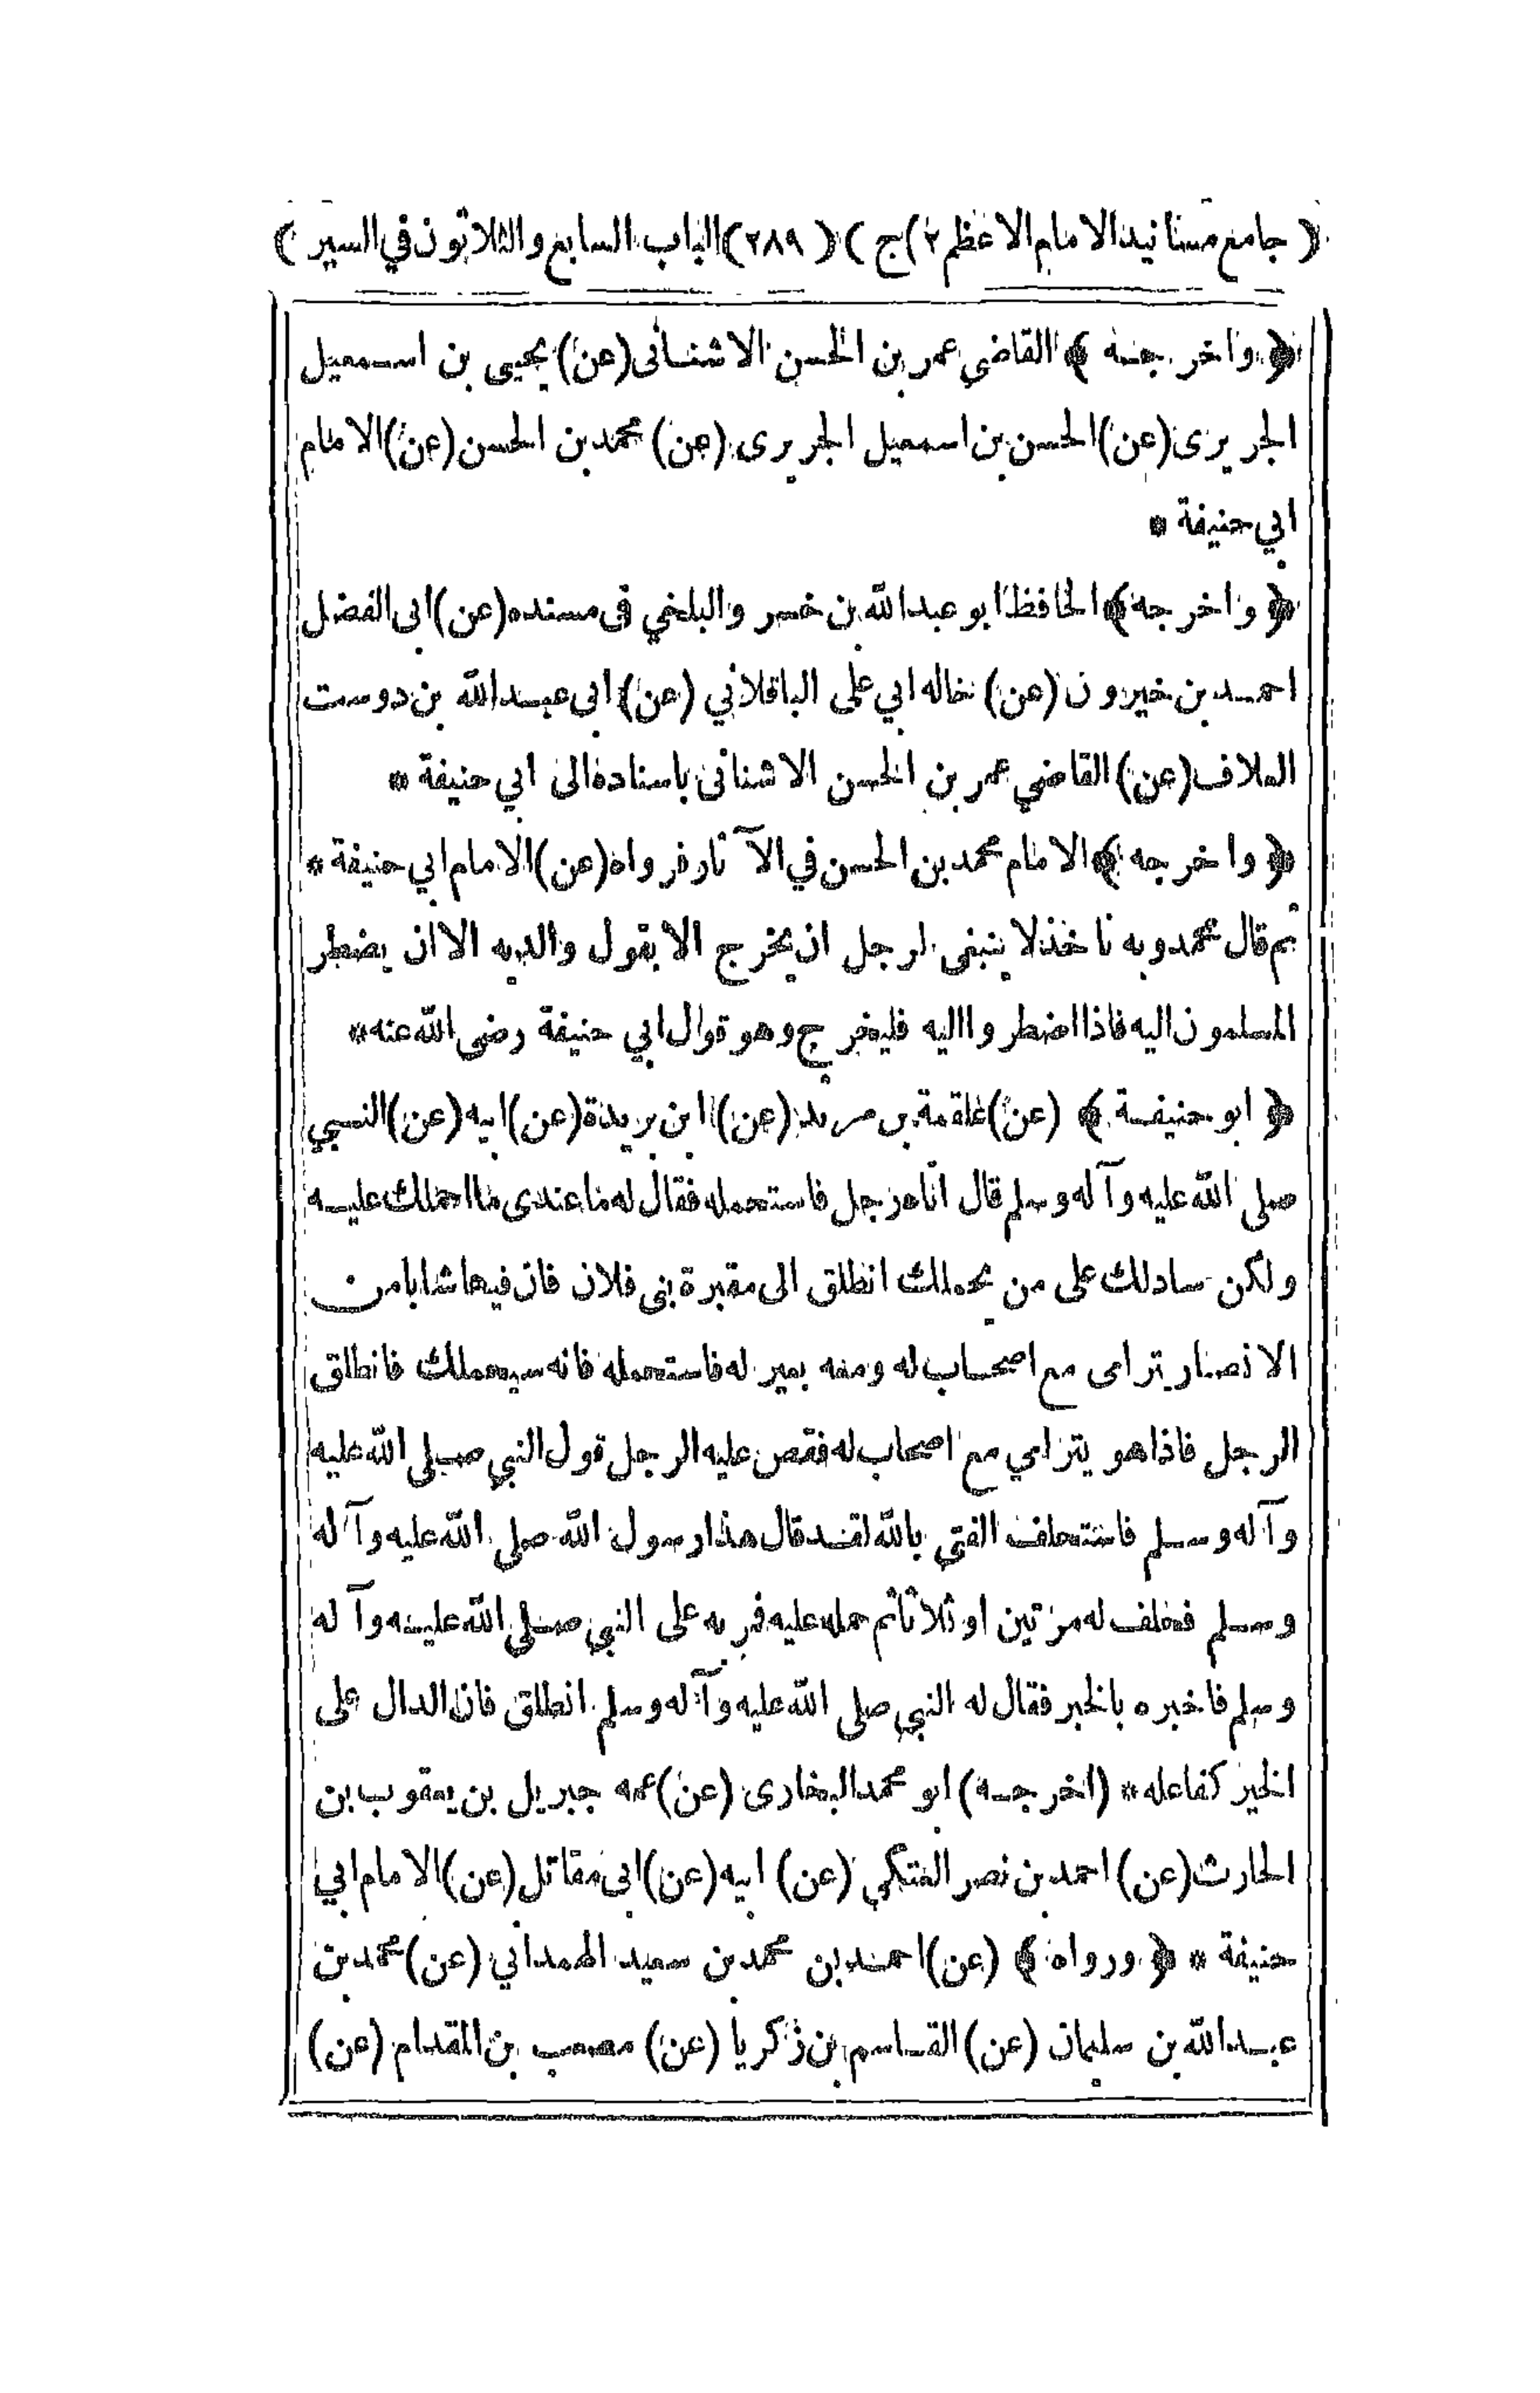 ( جامع مسانيد الامام الاعظم ٢)ج ) ( ٢٨٩ )الباب السابع والثلاثون في السير )
﴿ واخرجه ﴾ القاضي عمر بن الحسن الاشنانى (عن) يحيى بن اسمعيل
الجريرى (عن) الحسن بن اسمعيل الجريرى (عن) محمد بن الحسن (عن) الامام
ابي حنيفة *
﴿ واخرجه ﴾ الحافظ ابو عبد الله بن خسرو البلخي فى مسنده (عن) ابى الفضل
احمد بن خيرون (عن) خاله ابي على الباقلاني (عن) ابى عبد الله بن دوست
العلاف (عن) القاضي عمر بن الحسن الاشنانى باسناده الى ابي حنيفة *
﴿ واخرجه ﴾ الامام محمد بن الحسن في الآثار فرواه (عن) الامام ابي حنيفة *
ثم قال محمد وبه ناخذ لا ينبغى لرجل ان يخرج الا بقول والديه الا ان يضطر
المسلمون اليه فاذا اضطروا اليه فليخرج وهو قول ابي حنيفة رضى الله عنه *
﴿ ابو حنيفة ﴾ (عن) علقمة بن مرثد (عن) ابن بريدة (عن) ابيه (عن) النبي
صلى الله عليه وآله وسلم قال اتاه رجل فاستحمله فقال له ما عندى ما احملك عليه
ولكن سادلك على من يحملك انطلق الى مقبرة بنى فلان فان فيها شابا من
الانصار يترامى مع اصحاب له ومعه بعير له فاستحمله فانه سيحملك فانطلق
الرجل فاذا هو يترامي مع اصحاب له فقص عليه الرجل قول النبي صلى الله عليه
وآله وسلم فاستحلف الفتى بالله لقد قال هذا رسول الله صلى الله عليه وآله
وسلم فحلف له مرتين او ثلاثا ثم حمله عليه فمر به على النبي صلى الله عليه وآله
وسلم فاخبره بالخبر فقال له النبي صلى الله عليه وآله وسلم انطلق فان الدال على
الخير كفاعله * (اخرجه) ابو محمد البخارى (عن) عمه جبريل بن يعقوب بن
الحارث (عن) احمد بن نصر العتكي (عن) ابيه (عن) ابى مقاتل (عن) الامام ابي
حنيفة * ﴿ ورواه ﴾ (عن) احمد بن محمد بن سعيد الهمداني (عن) محمد بن
عبد الله بن سليمان (عن) القاسم بن زكريا (عن) مصعب بن المقدام (عن)